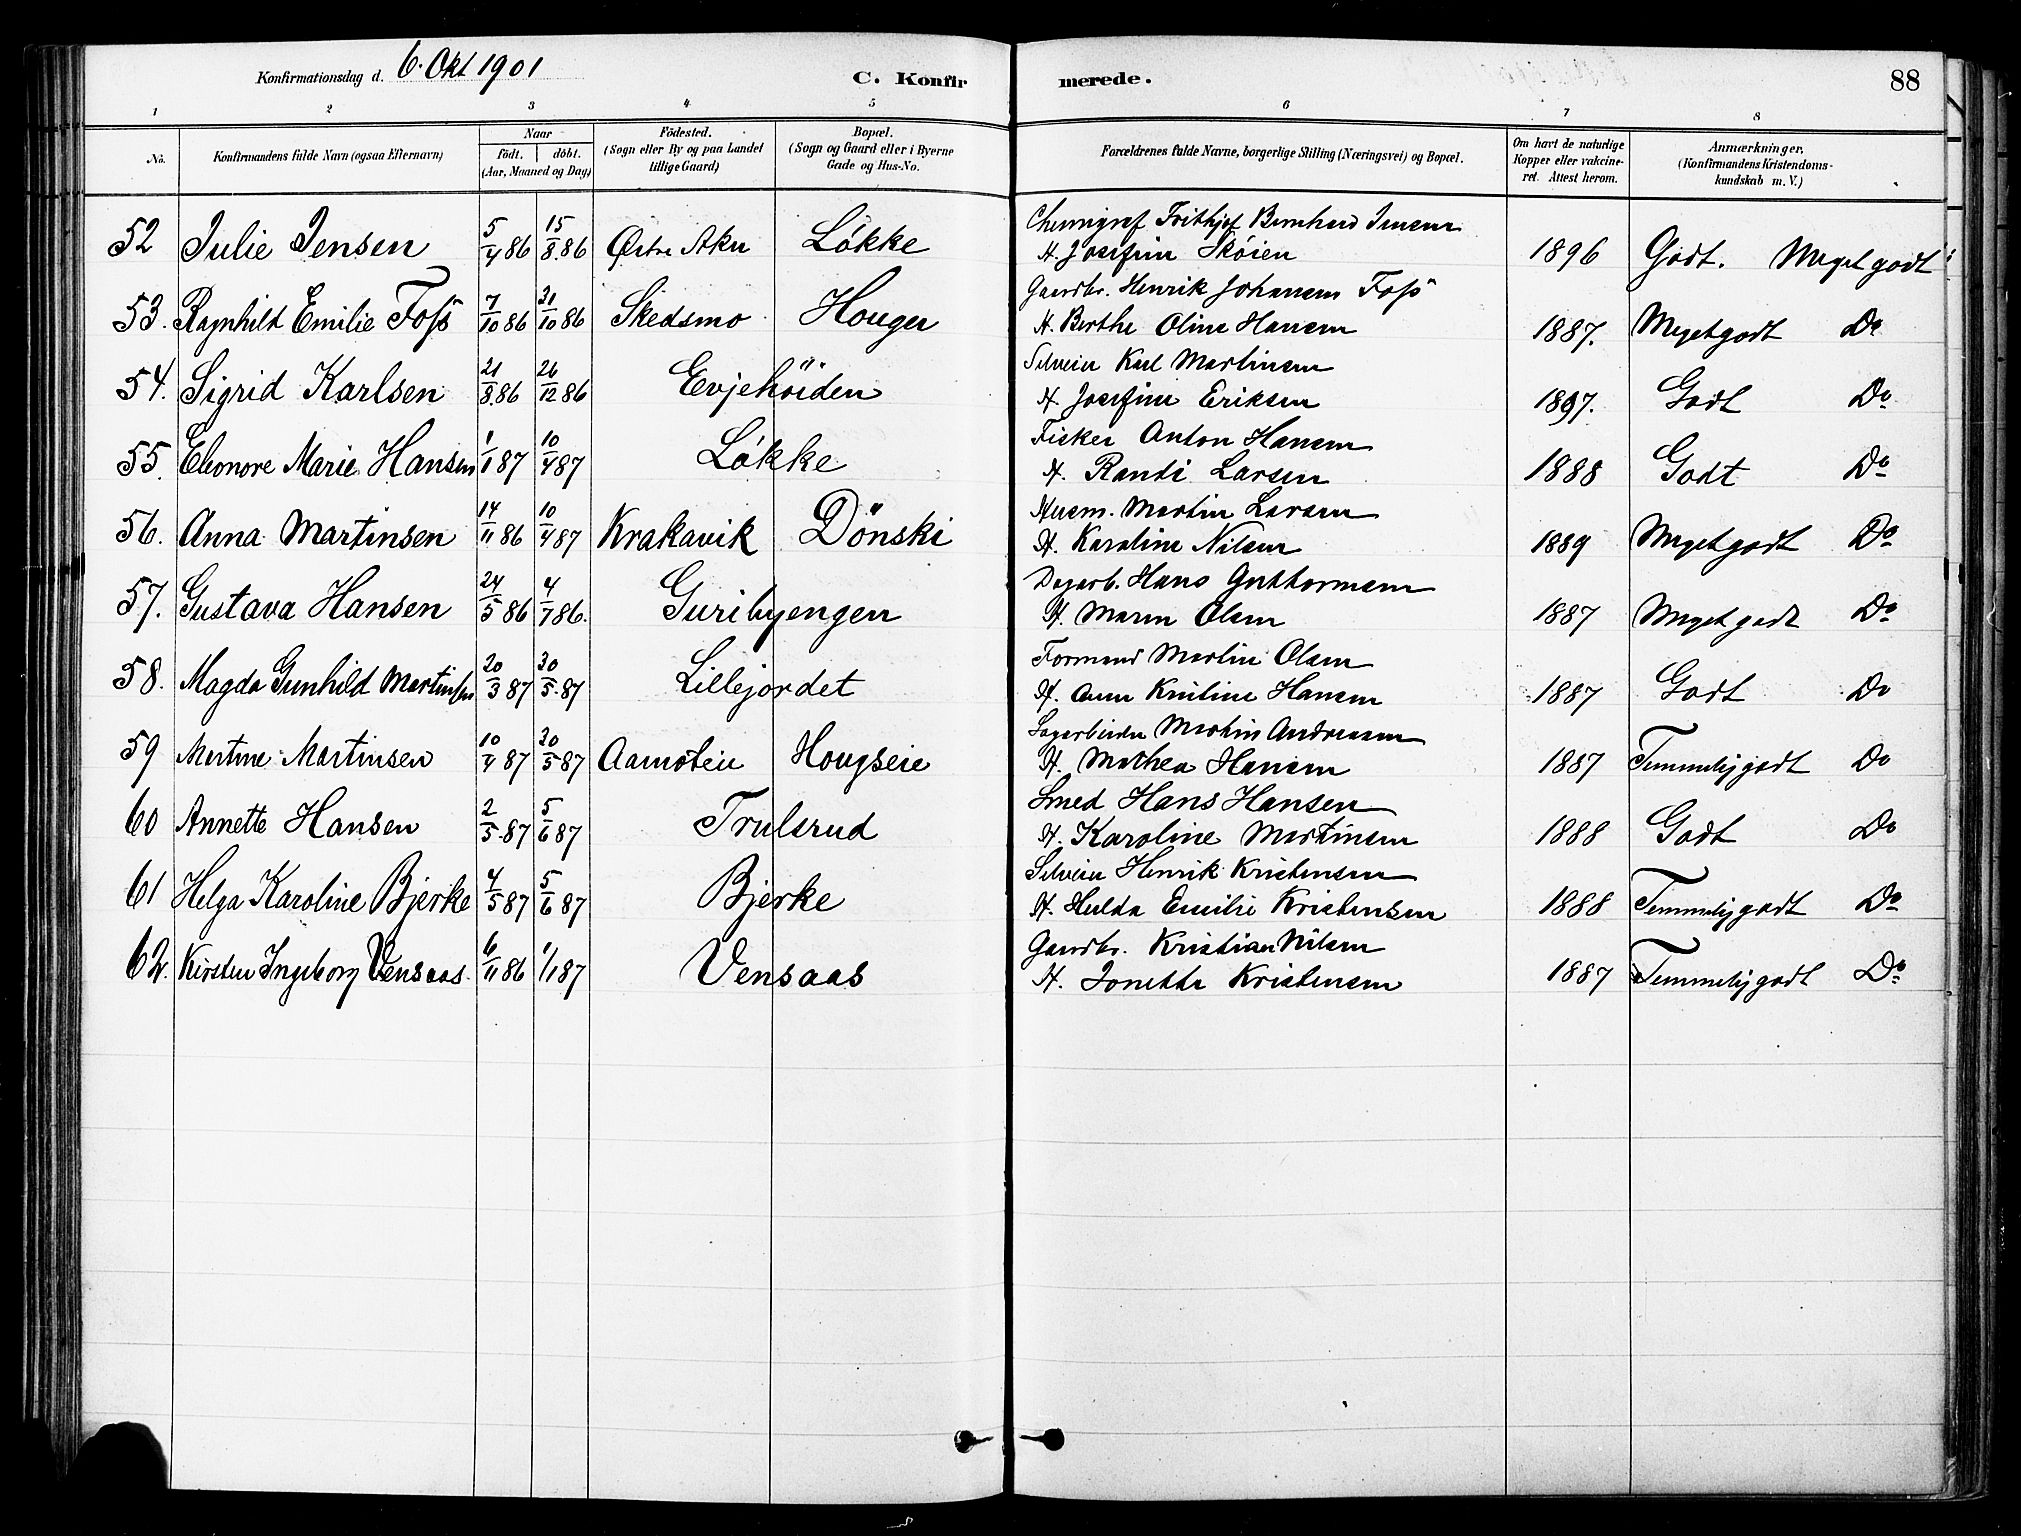 Konfirmationsdag d. 6. Okt 1901
C. Konfirmerede.
88
1 2 3 4 5 6 7 8
No.
Konfirmandens fulde Navn (ogsaa Efternavn)
Naar
födt. döbt.
(Aar, Maaned og Dag)
Födested.
(Sogn eller By og paa Landet
tillige Gaard)
Bopæl.
(Sogn og Gaard eller i Byerne
Gade og Hus-No.
Forældrenes fulde Navne, borgerlige Stilling (Næringsvei) og Bopæl.
Om havt de naturlige
Kopper eller vakcine-
ret. Attest herom.
Anmærkninger.
(Konfirmandens Kristendoms-
kundskab m. V.)
Chemigraf Frithjof Bernhard Jensen
52 Julie Jensen 5/4 86 15/8.86 Østre Aker Løkke H. Josefine Skøien 1896 Godt. Meget godt
Gaardbr. Henrik Johansen Foss
53. Ragnhild Emilie Foss 7/10 86 31/10 86 Skedsmo Houger H. Berthe Oline Hansen 1887. Meget godt Do
Selveier Karl Martinsen
54. Sigrid Karlsen 21/8.86 26/12 86 Evjehöiden H. Josefine Eriksen 1897. Godt Do
Fisker Anton Hansen
55. Eleonore Marie Hansen 1/1 87 10/4 87 Løkke H. Randi Larsen 1888 Godt Do
Husm. Martin Larsen
56. Anna Martinsen 14/11 86 10/4 87 Krakavik Dönski H. Karoline Nilsen 1889 Meget godt Do
Dagarb. Hans Guttormsen
57. Gustava Hansen 24/5 86 4/7 86. Guribyengen H. Maren Olsen 1887 Meget godt Do
Formand Martin Olsen
58. Magda Gunhild Martinsen 20/3 87 30/5.87 Lillejordet H. Anne Kristine Hansen 1887 Godt Do
Sagarbeider Martin Andreasen
59 Martine Martinsen 10/4 87 30/5 87 Aamoteie Hougseie H. Mathea Hansen 1887 Temmelig godt Do
Smed Hans Hansen
60 Annette Hansen 2/5.87 5/6 87 Trulsrud H. Karoline Martinsen 1888 Godt Do
Selveier Henrik Kristensen
61 Helga Karoline Bjerke 4/5 87 5/6 87 Bjerke H. Hulda Emilie Kristensen 1888 Temmelig godt Do
Gaardbr. Kristian Nilsen
62. Kirsten Ingeborg Vensaas. 6/11 86 1/1 87 Vensaas H. Jonette Kristensen 1887 Temmelig godt Do